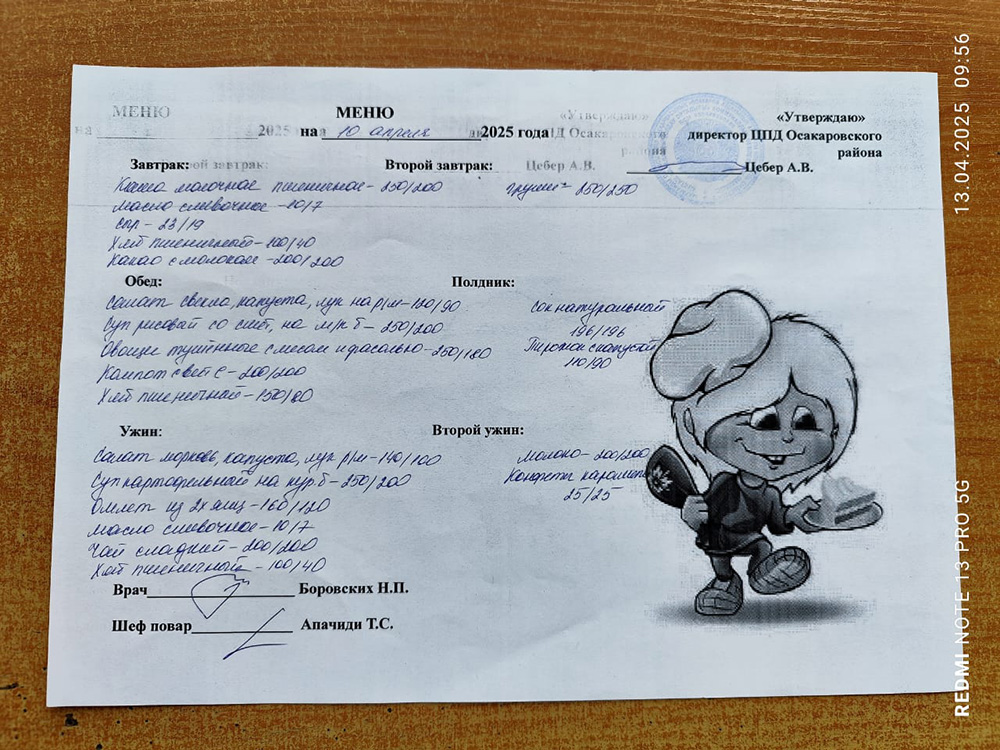 МЕНЮ
на 10 апреля 2025 года
«Утверждаю»
директор ЦПД Осакаровского
района
Цебер А.В.
Завтрак:
Каша молочное пшеничное - 250/200
Масло сливочное - 10/7
Сыр - 23/19
Хлеб пшеничный - 100/40
Какао с молоком - 200/200
Второй завтрак:
груши - 250/250
Обед:
Салат свекла, капуста, лук на р/м - 120/90
Суп рисовай со смет, на м/к б - 250/200
Овощи тушённые с мясом и фасолью - 250/180
Компот свет С - 200/200
Хлеб пшеничный - 150/80
Полдник:
Сок натуральный
196/196
Пирожок с капустой
110/90
Ужин:
Салат морковь, капуста, лук р/м - 140/100
Суп картофельный на кур.б - 250/200
Омлет из 2х яиц - 160/120
Масло сливочное - 10/7
Чай сладкий - 200/200
Хлеб пшеничный - 100/40
Второй ужин:
молоко - 200/200
Конфеты карамель
25/25
Врач Боровских Н.П.
Шеф повар Апачиди Т.С.
13.04.2025 09:56
REDMI NOTE 13 PRO 5G